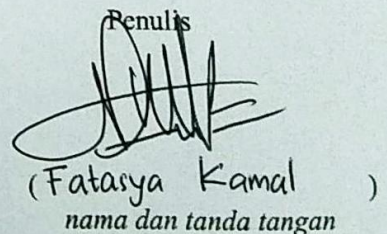 Penulis
(Fatasya Kamal )
nama dan tanda tangan